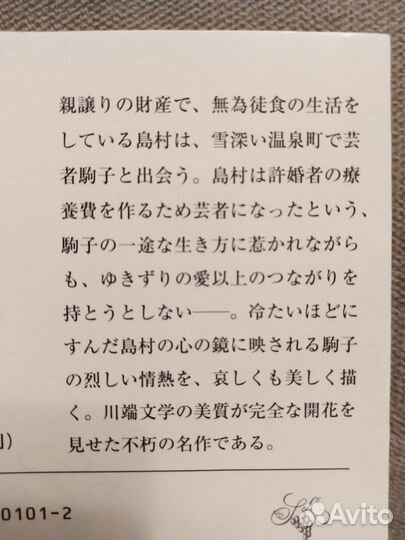 親譲りの財産で、無為徒食の生活を
している島村は、雪深い温泉町で芸
者駒子と出会う。島村は許婚者の療
養費を作るため芸者になったという、
駒子の一途な生き方に惹かれながら
も、ゆきずりの愛以上のつながりを
持とうとしない――。冷たいほどに
すんだ島村の心の鏡に映される駒子
の烈しい情熱を、哀しくも美しく描
く。川端文学の美質が完全な開花を
見せた不朽の名作である。
)
0101-2
Avito